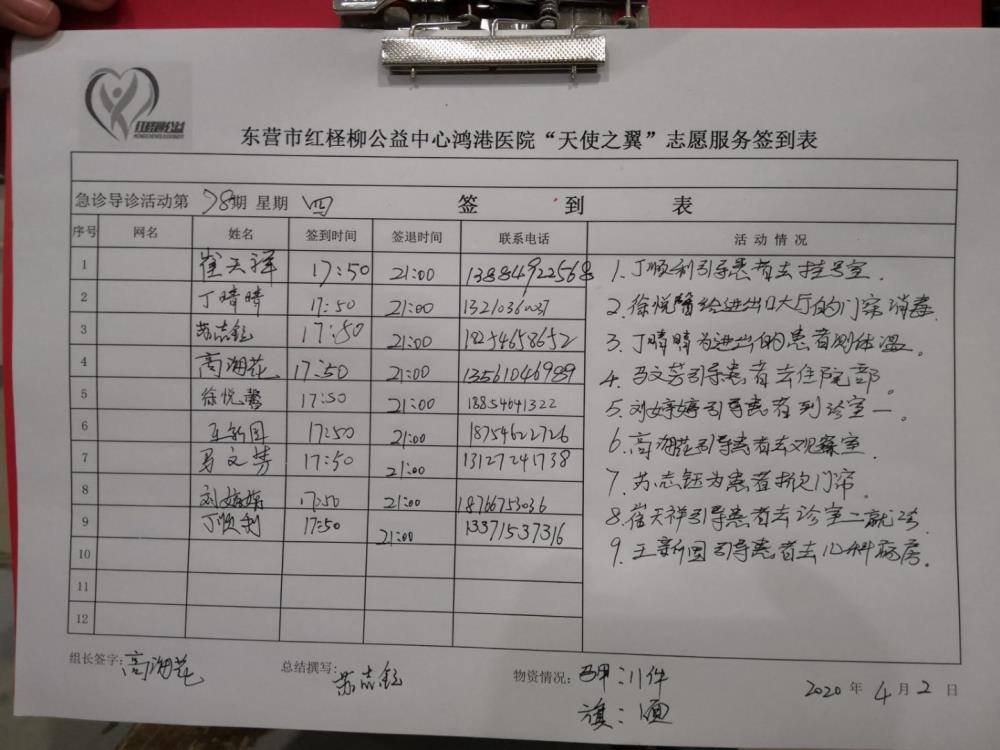 红柽柳公益
东营市红柽柳公益中心鸿港医院“天使之翼”志愿服务签到表
急诊导诊活动第78期 星期四 签到表
序号 网名 姓名 签到时间 签退时间 联系电话 活动情况
1 崔天祥 17:50 21:00 13884922568
2 丁晴晴 17:50 21:00
3 苏志钰 17:50 21:00 18254658652
4 高海花 17:50 21:00 13561046989
5 徐悦馨 17:50 21:00 18854641322
6 王新国 17:50 21:00 18754622726
7 马文芳 17:50 21:00 13127241738
8 刘婷婷 17:50 21:00 18766753036
9 丁顺利 17:50 21:00 13371537316
10
11
12
1.丁顺利引导患者去挂号室.
2.徐悦馨给进出口大厅的门帘消毒.
3.丁晴晴为进出的患者测体温。
4.马文芳引导患者去住院部。
5.刘婷婷引导患者到诊室一。
6.高海花引导患者去观察室.
7.苏志钰为患者掀门帘.
8.崔天祥引导患者去诊室二就诊.
9.王新国引导患者去儿科病房.
组长签字:高海花 总结撰写:苏志钰 物资情况:马甲:11件
旗:1面
2020年4月2日